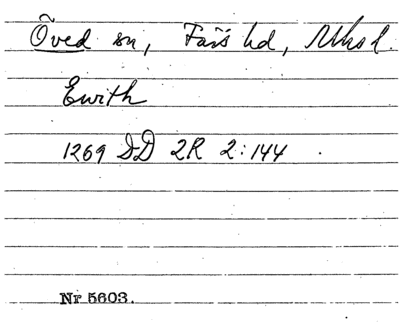 Öved sn, Färs hd, Mhsl.
Ewith
1269 DD 2R 2:144.
Nr 5603.